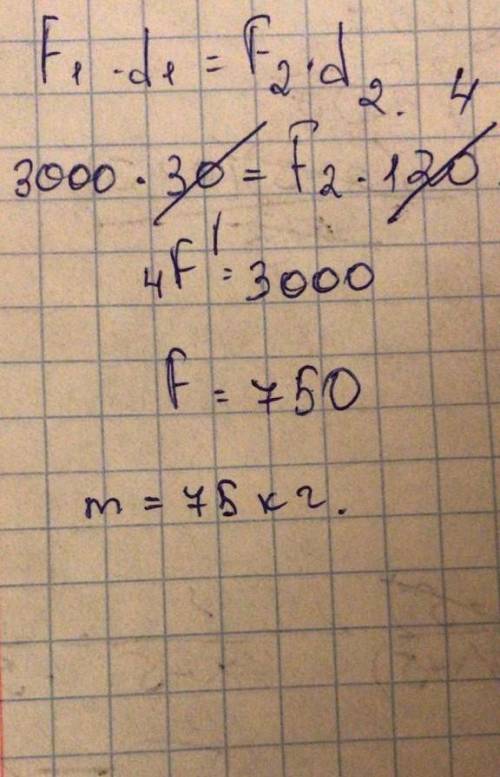 F₁ · d₁ = F₂ · d₂.
4
3000 · 30 = F₂ · 120
4F = 3000
F = 750
m = 75 кг.